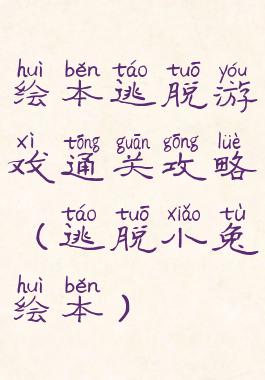 huì běn táo tuō yóu
绘本逃脱游
xì tōng guān gōng lüè
戏通关攻略
táo tuō xiǎo tù
（逃脱小兔
huì běn
绘本）